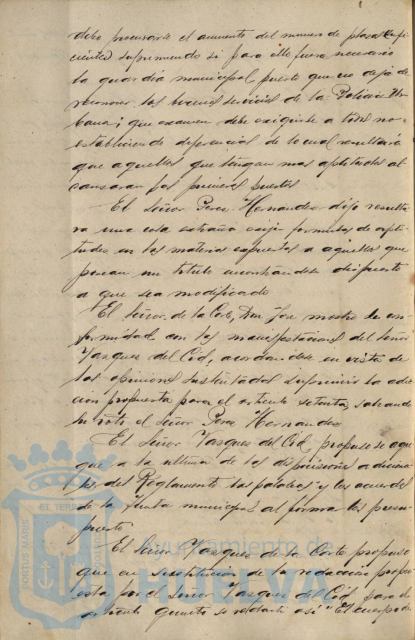 debe procurarse el aumento del número de plazas sufi-
cientes suprimiendo si para ello fuera necesario
la guardia municipal, puesto que no deja de
reconocer los buenos servicios de la Policía Ur-
bana; que examen debe exigirse a todos no
estableciendo diferencias de lo cual resultaría
que aquellos que tengan mas aptitudes al
canzaran los primeros puestos
El Señor Perez Hernandez dijo resulta
ra una cosa extraña exijir formulas de apti
tudes en las materias expuestas a aquellos que
posean un titulo
a que sea modificado
El Señor de la Corte, Don José mostro su con
formidad con las manifestaciones del Señor
Vazquez del Cid, acordandose en vista de
las opiniones sustentadas suprimir la adi
cion propuesta para el articulo setenta, salvando
su voto el Señor Perez Hernandez
El Señor Vazquez del Cid, propuso se agre
gue a la ultima de las disposiciones adiciona
les del Reglamento las palabras "y los acuerdos
de la Junta municipal al formar los presu-
puestos
El Señor Vazquez de la Corte propuso
que en sustitucion de la redaccion propu
esta por el Señor Vazquez del Cid, para el
articulo quinto se redacte así "El cuerpo de
Ayuntamiento de
HUELVA
PORTUS MARIS
ET TERRE